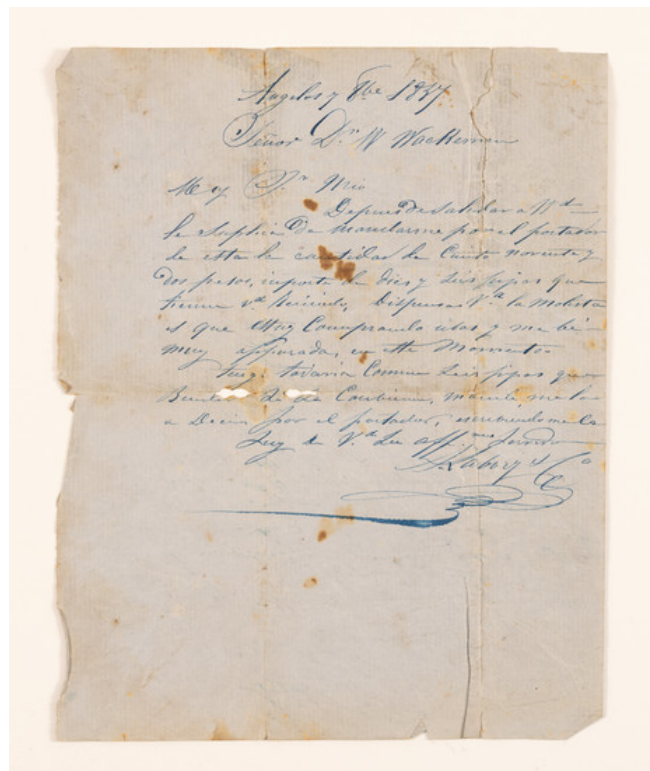 Angeles y 8be 1857
Señor Dn W Wackeman
Muy Sr Mio
Depues de Saludar a Vd
le Suplico De mandarme por el portador
de esta la cantidad de Ciento noventa y
dos pesos, importe de dies y Seis pipas que
tiene vd Recivido, Dispensa Vd la Molestia
es que estoy Comprando uvas y me be
muy apurada, en este Momento
Teng. todavia Como Seis pipas que
Bender Si le Combiene, mande me lo
a Decir por el portador, escribiendo me la
Soy de Vd Su affmo Servido
Labory & Co